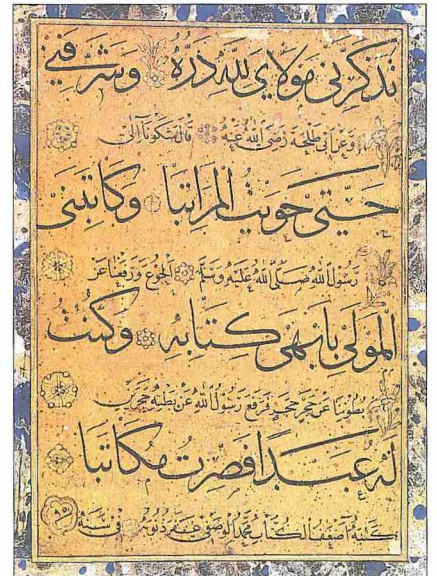 تَذَكَّرَنِي مَوْلَايَ لِلّٰهِ دَرُّهُ وَشَرَّفَنِي
وَعَنْ أَبِي طَلْحَةَ رَضِيَ اللهُ عَنْهُ قَالَ شَكَوْنَا إِلَى
حَتَّى حَوَيْتُ الْمَرَاتِبَا وَكَاتَبَنِي
رَسُولِ اللهِ صَلَّى اللهُ عَلَيْهِ وَسَلَّمَ الْجُوعَ وَرَفَعْنَا عَنْ
الْمَوْلَى بِأَبْهَى كِتَابِهِ وَكُنْتُ
بُطُونِنَا عَنْ حَجَرٍ حَجَرٍ فَرَفَعَ رَسُولُ اللهِ عَنْ بَطْنِهِ حَجَرَيْنِ
لَهُ عَبْدًا فَصِرْتُ مُكَاتَبَا
كتبه أضعف الكتاب محمد الوصفي غفر ذنوبه في سنة